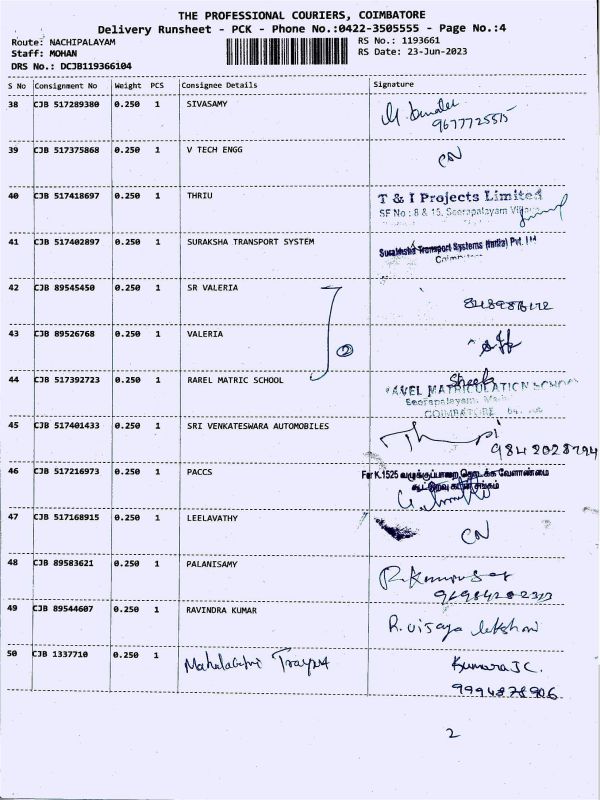 THE PROFESSIONAL COURIERS, COIMBATORE
Delivery Runsheet - PCK - Phone No.:0422-3505555 - Page No.:4
Route: NACHIPALAYAM RS No.: 1193661
Staff: MOHAN RS Date: 23-Jun-2023
DRS No.: DCJB119366104
S No Consignment No Weight PCS Consignee Details Signature
38 CJB 517289380 0.250 1 SIVASAMY
9677725515
39 CJB 517375868 0.250 1 V TECH ENGG CN
40 CJB 517418697 0.250 1 THRIU T & I Projects Limited
SF No : 8 & 15, Seerapalayam
41 CJB 517402897 0.250 1 SURAKSHA TRANSPORT SYSTEM Suraksha Transport Systems (India) Pvt. Ltd
42 CJB 89545450 0.250 1 SR VALERIA
43 CJB 89526768 0.250 1 VALERIA
2
44 CJB 517392723 0.250 1 RAREL MATRIC SCHOOL
AVEL MATRICULATION SCHOOL
Seerapalayam,
COIMBATORE
45 CJB 517401433 0.250 1 SRI VENKATESWARA AUTOMOBILES
9842028794
46 CJB 517216973 0.250 1 PACCS For K.1525 வழுக்குப்பாறை தொடக்க வேளாண்மை
கூட்டுறவு கடன் சங்கம்
47 CJB 517168915 0.250 1 LEELAVATHY CN
48 CJB 89583621 0.250 1 PALANISAMY
49 CJB 89544607 0.250 1 RAVINDRA KUMAR R. visaya lekshmi
50 CJB 1337710 0.250 1 Kumara JC.
9994878906
2